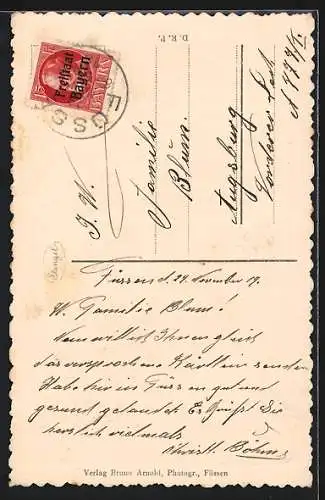 D. R. P.
Freistaat
Bayern
FÜSS
I. W.
Familie
Blum.
Augsburg
Vorderer Lech
Füssen d. 24. November 19.
W. Familie Blum!
Nun will ich Ihnen gleich
das versprochene Kärtlein senden
Habe hier in Füssen gut und
gesund gelandet. Es Grüßt Sie
herzlich vielmals
Christl. Böhm
Verlag Bruno Arnold, Photogr., Füssen